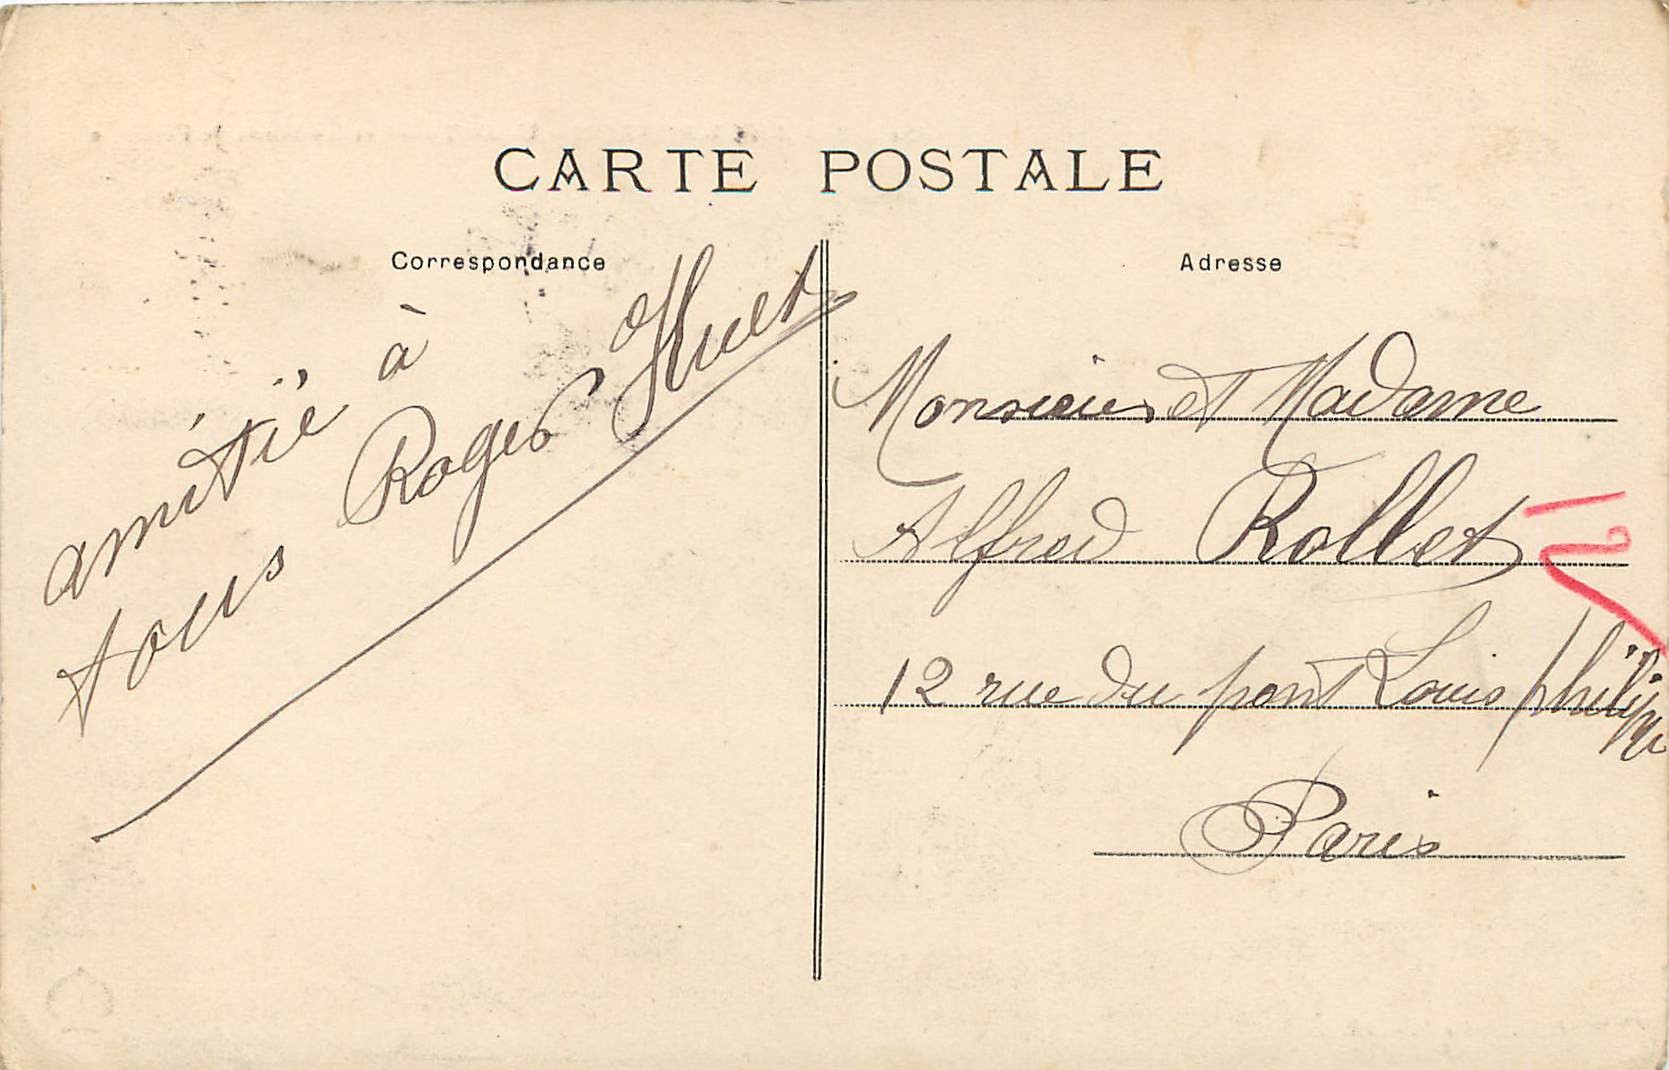 CARTE POSTALE
Correspondance
amitié à
tous Roger Huet
Adresse
Monsieur et Madame
Alfred Rollet
12 rue du pont Louis philippe
Paris